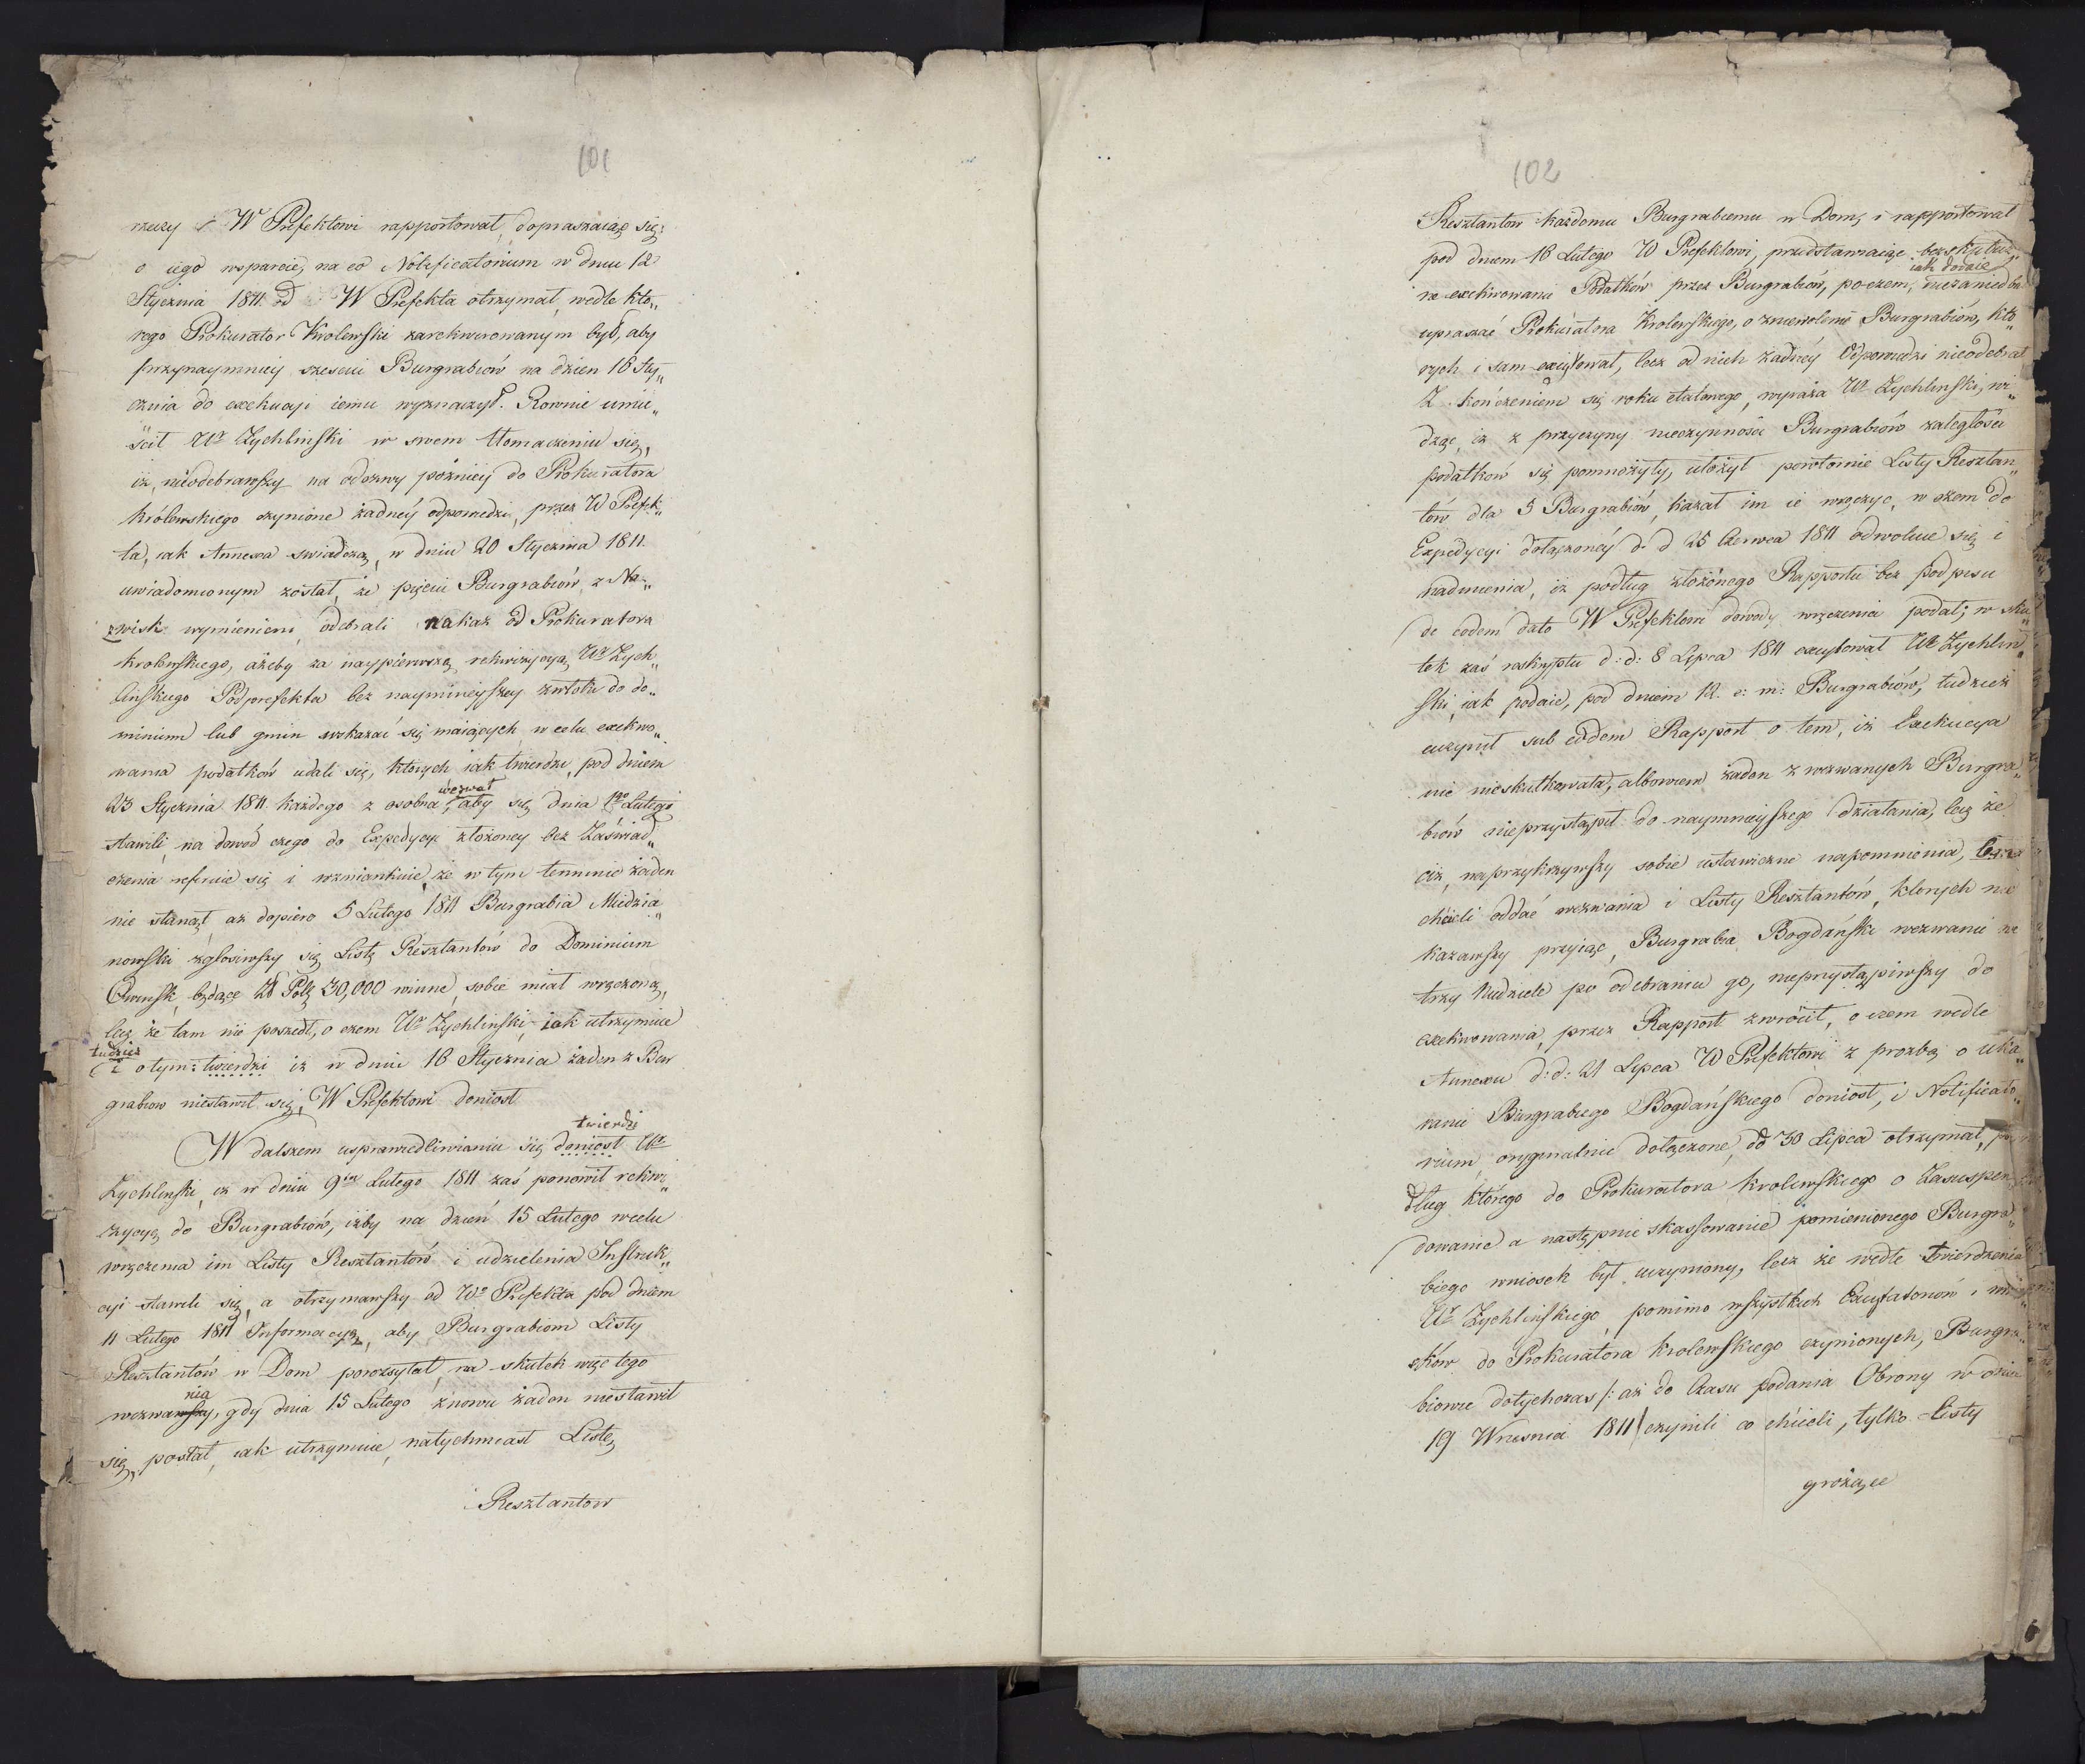 101
rzeczy W Prefektowi rapportował, dopraszaiąc się
o iego wsparcie, na co Notificatorium w dniu 12
Stycznia 1811. od W Prefekta otrzymał, wedle któ„
rego Prokurator Krolewski zarekwirowanym był, aby
przynaymniey sześciu Burgrabiów na dzien 16 Sty„
cznia do exekucyi iemu wyznaczył. Rownie umie„
ścił Ur Zychlinski w swem tłomaczeniu się,
iż, nieodebrawszy na odezwy pożniéy do Prokuratora
królewskiego czynione żadnéy odpowiedzi, przez W Prefek„
ta, iak Annexa swiadczą, w dniu 20 Stycznia 1811.
uwiadomionym został, że pięciu Burgrabiów z Na„
zwisk wymienieni odebrali nakaz od Prokuratora
krolewskiego, ażeby za naypierwszą rekwizycyą Ur Zych„
linskiego Podprefekta bez naymnieyszey zwłoki do do„
minium lub gmin wskazać się maiących w celu exekwo„
wania podatków udali się, ktorych iak twierdzi, pod dniem
wezwał
23 Stycznia 1811. każdego z osobna, aby się dnia 1go Lutego
stawili, na dowód czego do Expedycyi złożoney bez Zaświad„
czenia referuie się i wzmiankuie, że w tym terminie żaden
nie stanął, aż dopiero 5 Lutego 1811 Burgrabia Miedzia„
nowski zgłosiwszy się Listę Resztantów do Dominium
Owinsk, będące Zł Pols 30,000 winne, sobie miał wręczoną,
lecz że tam nie poszedł, o czem Ur Zychlinski, iak utrzymuie
tudzież
i o tym twierdzi iż w dniu 16 Stycznia żaden z Bur
grabiow niestawił się, W Prefektowi doniosł
twierdzi
W dalszem usprawiedliwianiu się doniosł Ur
Zychlinski, iż w dniu 9tym Lutego 1811 zaś ponowił rekwi„
zycyę do Burgrabiów, iżby na dzień 15 Lutego wcelu
wręczenia im Listy Resztantów i udzielenia Instruk„
cyi stawili się, a otrzymawszy od Wo Prefekta pod dniem
11 Lutego 1811 Informacyą, aby Burgrabiom Listy
Resztantów w Dom porozsyłał, na skutek więc tego
nia
wezwawszy, gdy dnia 15 Lutego znowu żaden niestawił
się, posłał, iak utrzymuie, natychmiast Listę
Resztantow
102
Resztantow każdemu Burgrabiemu w Dom, i rapportował
pod dniem 16 Lutego W Prefektowi, przedstawiaiąc bezskutecz„
iak dodaie
ne exekwowanie Podatków przez Burgrabiów, poczem, niezaniedbał
upraszać Prokuratora Krolewskiego, o zniewolenie Burgrabiów, któ„
rych i sam excytował, lecz od nich żadnéy Odpowiedzi nieodebrał
Z kończeniem się roku etatowego, wyraża Ur Zychlinski, wi„
dząc, iż z przyczyny nieczynności Burgrabiów zaległości
podatkow się pomnożyły, ułożył powtornie Listy Resztan„
tów dla 5 Burgrabiów, kazał im ie wręczyć, w czem do
Expedycyi dołączonéy d. d 25 Czerwca 1811 odwołuie się i
nadmienia, iż podług złożónego Rapportu bez podpisu
de eodem dato W Prefektowi dowody wręczenia podał; w sku„
tek zaś reskryptu d: d: 8 Lipca 1811 excytował Ur Zychlin„
ski, iak podaie, pod dniem 12. e: m: Burgrabiów, tudzież
uczynił sub eodem Rapport o tem, iż Exekucya
nic nieskutkowała, albowiem żaden z wezwanych Burgra„
biów nieprzystąpił do naymnieyszego działania, lecz że
ciż, naprzykrzywszy sobie ustawiczne napomnienia,
chcieli oddać wezwania i Listy Resztantów, ktorych nie
kazawszy przyiąc, Burgrabia Bogdański wezwanie we
trzy Niedziele po odebraniu go, nieprzystąpiwszy do
exekwowania, przez Rapport zwrócił, o czem wedle
Annexu d: d: 21 Lipca W Prefektowi z prozbą o uka„
ranie Burgrabiego Bogdańskiego doniosł, i Notificato„
rium oryginalnie dołączone dd 30 Lipca otrzymał, po
dług którego do Prokuratora krolewskiego o Zasuspen„
dowanie a następnie skassowanie pomienionego Burgra„
biego wniosek był uczyniony, lecz że wedle twierdzenia
Ur Zychlinskiego, pomimo wszystkich Excytatoriów i wnio„
sków do Prokuratora krolewskiego czynionych, Burgra„
biowie dotychczas /: aż do Czasu podania Obrony w dniu
19 Wrzesnia 1811/ czynili co chcieli, tylko Listy
grożące